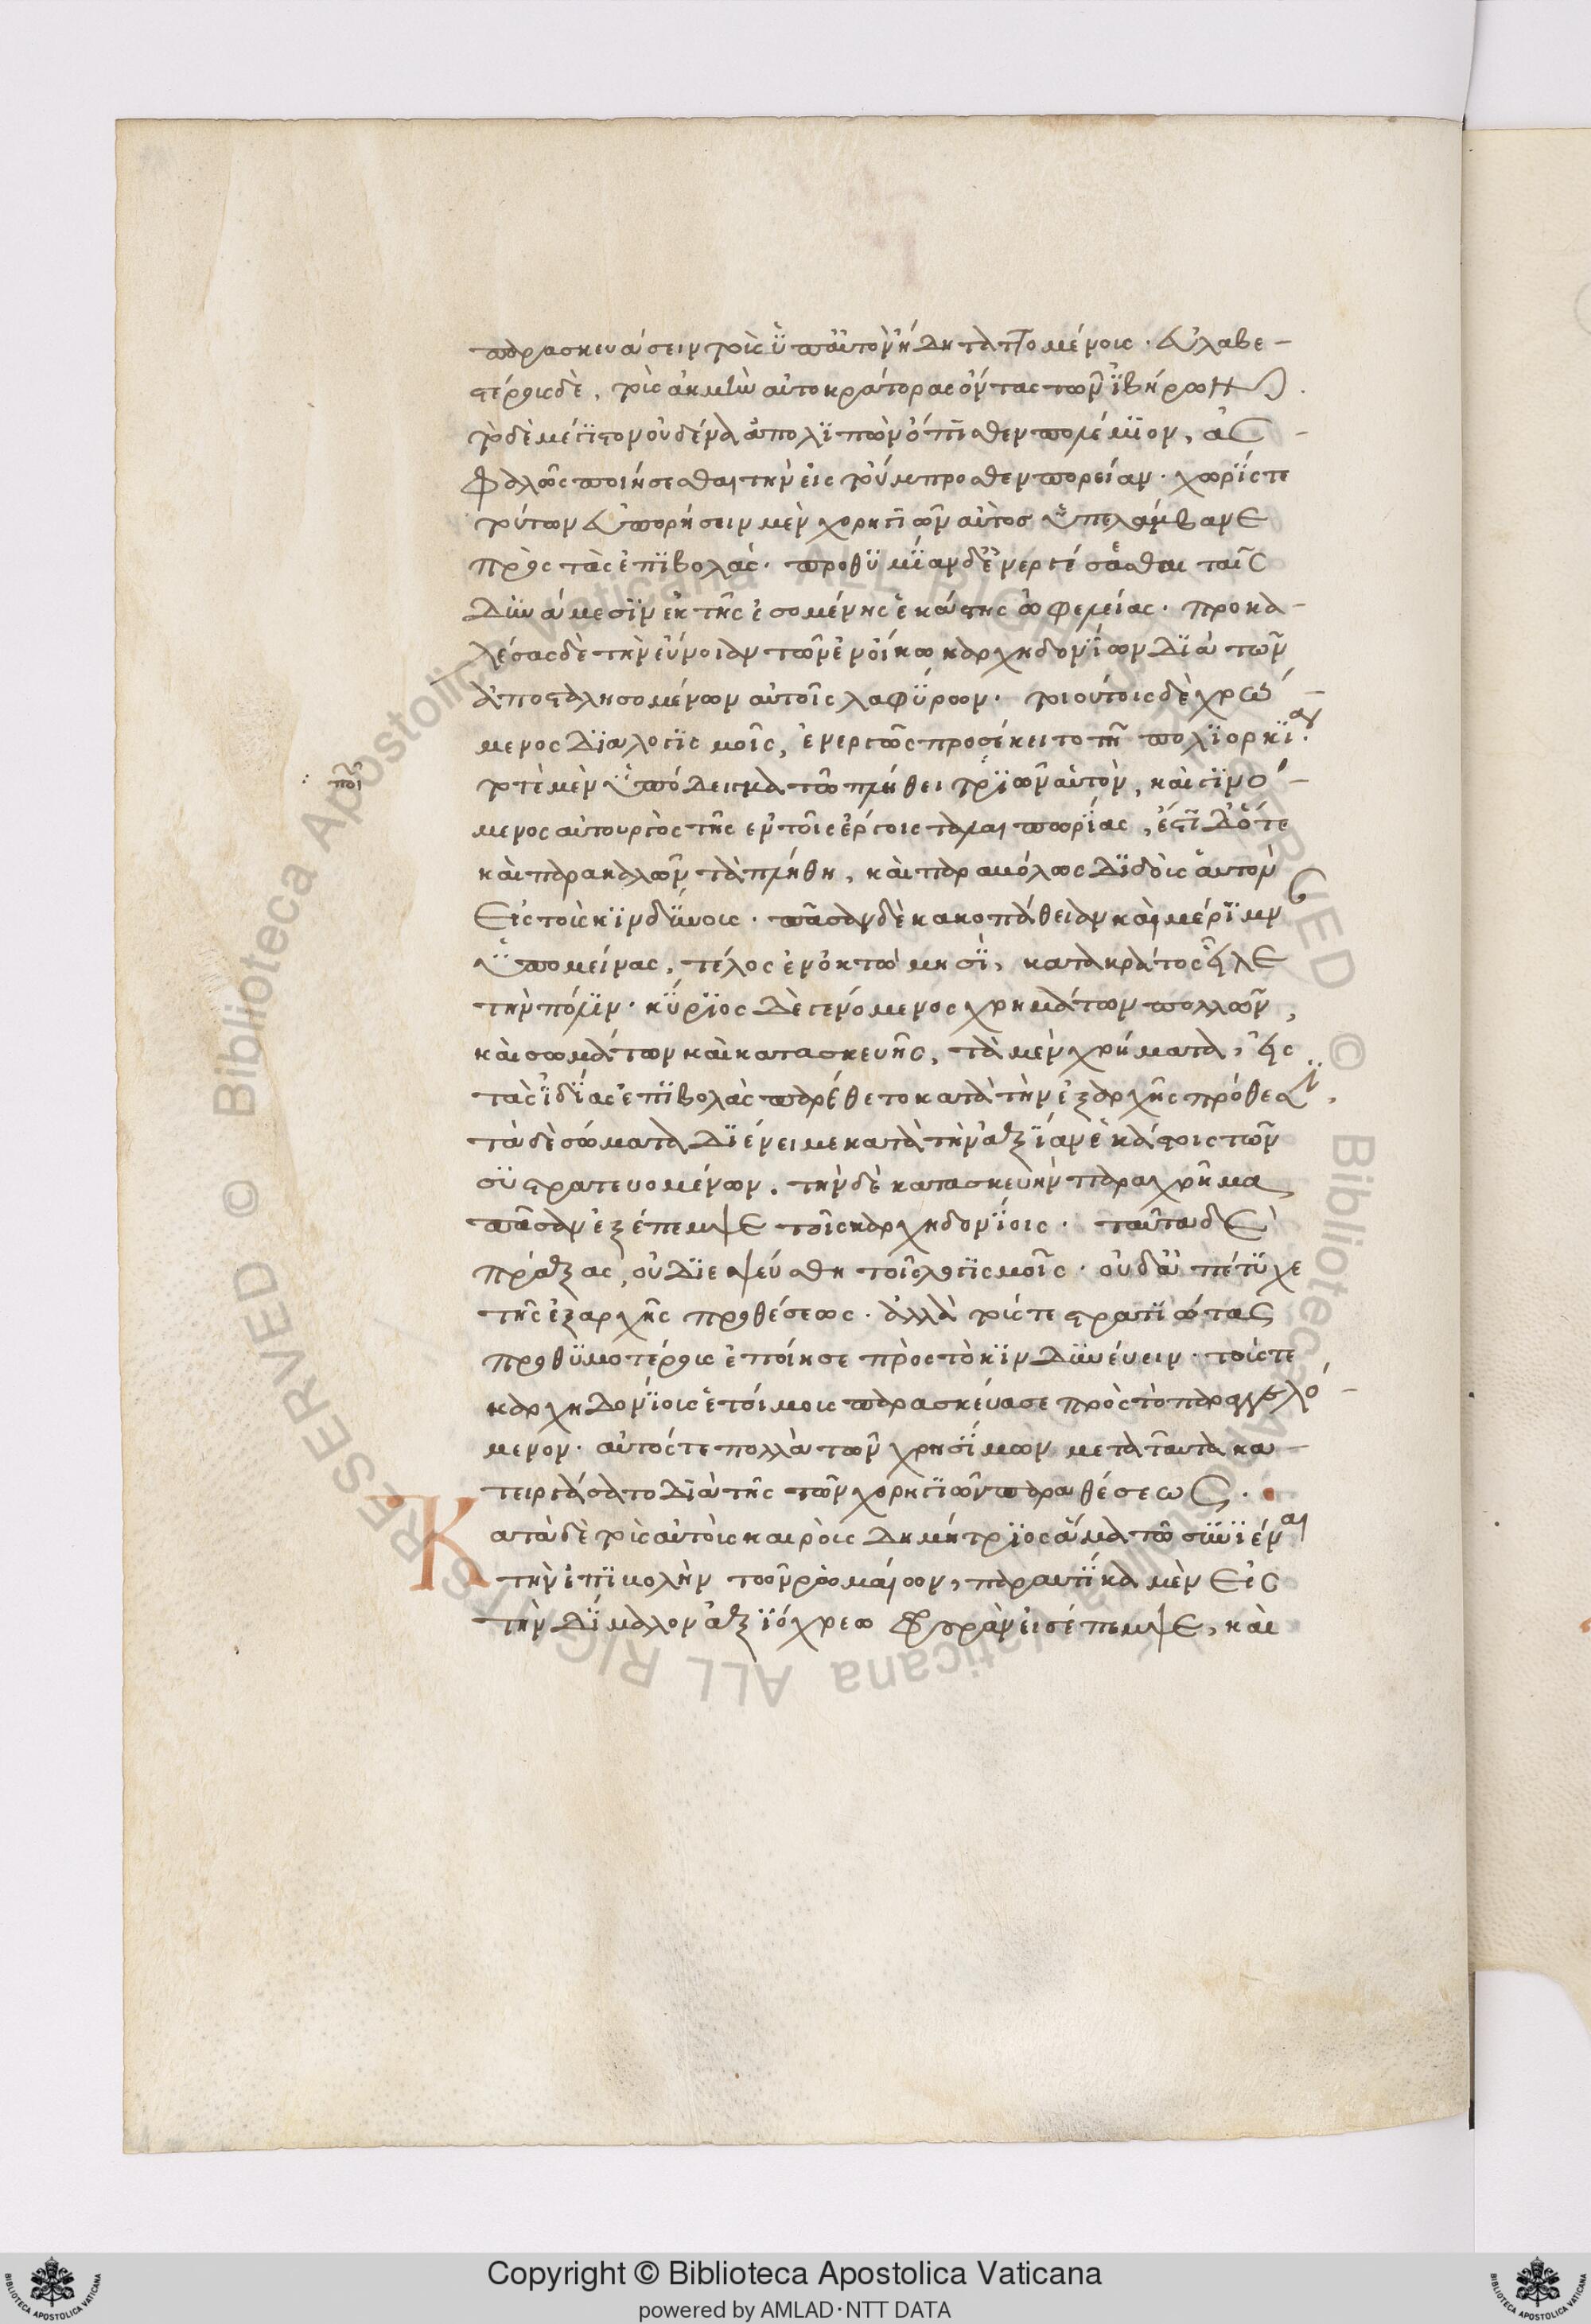 παρασκευάσειν τοὺς ὑπ' αὐτὸν ἤδη ταττομένους. εὐλαβε-
στέρους δὲ, τοὺς ἀκμὴν αὐτοκράτορας ὄντας τῶν ἰβήρων.
τὸ δὲ μέγιστον οὐδένα ἀπολιπὼν ὄπισθεν πολέμιον, ἀσ-
φαλῶς ποιήσεσθαι τὴν εἰς τοὔμπροσθεν πορείαν. χωρίς τε
τούτων εὐπορήσειν μὲν χορηγιῶν αὐτὸς ὑπελάμβανε
πρὸς τὰς ἐπιβολάς. προθυμίαν δ' ἐνεργάσεσθαι ταῖς
δυνάμεσιν ἐκ τῆς ἐσομένης ἑκάστης ὠφελείας. προκα-
λέσας δὲ τὴν εὔνοιαν τῶν ἐν οἴκω καρχηδονίων διὰ τῶν
ἀποσταλησομένων αὐτοῖς λαφύρων. τοιούτοις δὲ χρώ-
μενος διαλογισμοῖς, ἐνεργῶς προσέκειτο τῆ πολιορκία.
ποτὲ μὲν ὑπόδειγμα τῶ πλήθει ποιῶν αὐτὸν, καὶ γινό-
μενος αὐτουργὸς τῆς ἐν τοῖς ἔργοις ταλαιπωρίας, ἔστι δ' ὅτε
καὶ παρακαλῶν τὰ πλήθη, καὶ παραβόλως διδοὺς αὑτὸν
εἰς τοὺς κινδύνους. πᾶσαν δὲ κακοπάθειαν καὶ μέριμναν
ὑπομείνας, τέλος ἐν ὀκτὼ μησὶ, κατὰ κράτος εἷλε
τὴν πόλιν. κύριος δὲ γενόμενος χρημάτων πολλῶν,
καὶ σωμάτων καὶ κατασκευῆς, τὰ μὲν χρήματα, εἰς
τὰς ἰδίας ἐπιβολὰς παρέθετο κατὰ τὴν ἐξαρχῆς πρόθεσιν,
τὰ δὲ σώματα διένειμε κατὰ τὴν ἀξίαν ἑκάστοις τῶν
συστρατευομένων. τὴν δὲ κατασκευὴν παραχρῆμα
πᾶσαν ἐξέπεμψε τοῖς καρχηδονίοις. ταῦτα δὲ
πράξας, οὐ διεψεύσθη τοῖς λογισμοῖς. οὐδ' ἀπέτυχε
τῆς ἐξαρχῆς προθέσεως. ἀλλὰ τούς τε στρατιώτας
προθυμοτέρους ἐποίησε πρὸς τὸ κινδυνεύειν. τούς τε
καρχηδονίους ἑτοίμους παρασκεύασε πρὸς τὸ παραγγελλό-
μενον. αὐτός τε πολλὰ τῶν χρησίμων μετὰ ταῦτα κα-
τειργάσατο διὰ τῆς τῶν χορηγιῶν παραθέσεως.
Κατὰ δὲ τοὺς αὐτοὺς καιροὺς δημήτριος ἅμα τῶ συνιέναι
τὴν ἐπιβολὴν τῶν ῥωμαίων, παραυτίκα μὲν εἰς
τὴν διμάλον ἀξιόχρεω φρουρὰν εἰσέπεμψε, καὶ